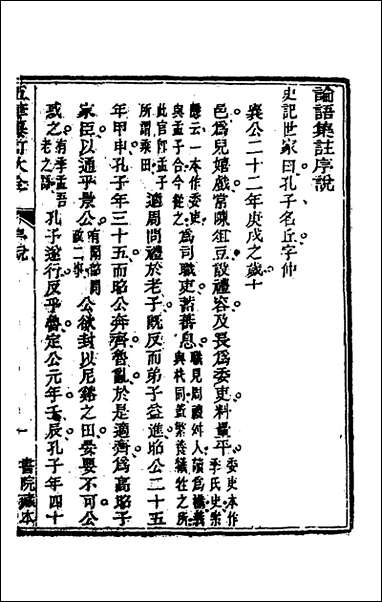 論語集註序說
史記世家曰孔子名丘字仲
襄公二十二年庚戌之歲十
邑爲兒嬉戲常陳俎豆設禮容及長爲委吏料量平
委吏本作
季氏史索
隱云一本作委吏
與孟子合今從之
爲司職吏畜蕃息
職見周禮牛人讀爲樴義
與杙同蓋繫養犧牲之所
此官即孟子
所謂乘田
適周問禮於老子既反而弟子益進昭公二十五
年甲申孔子年三十五而昭公奔齊魯亂於是適齊爲高昭子
家臣以通乎景公
有聞韶問
政二事
公欲封以尼谿之田晏嬰不可公
惑之
有季孟吾
老之語
孔子遂行反乎魯定公元年壬辰孔子年四十
五華纂訂大全 序說 一 書院藏本